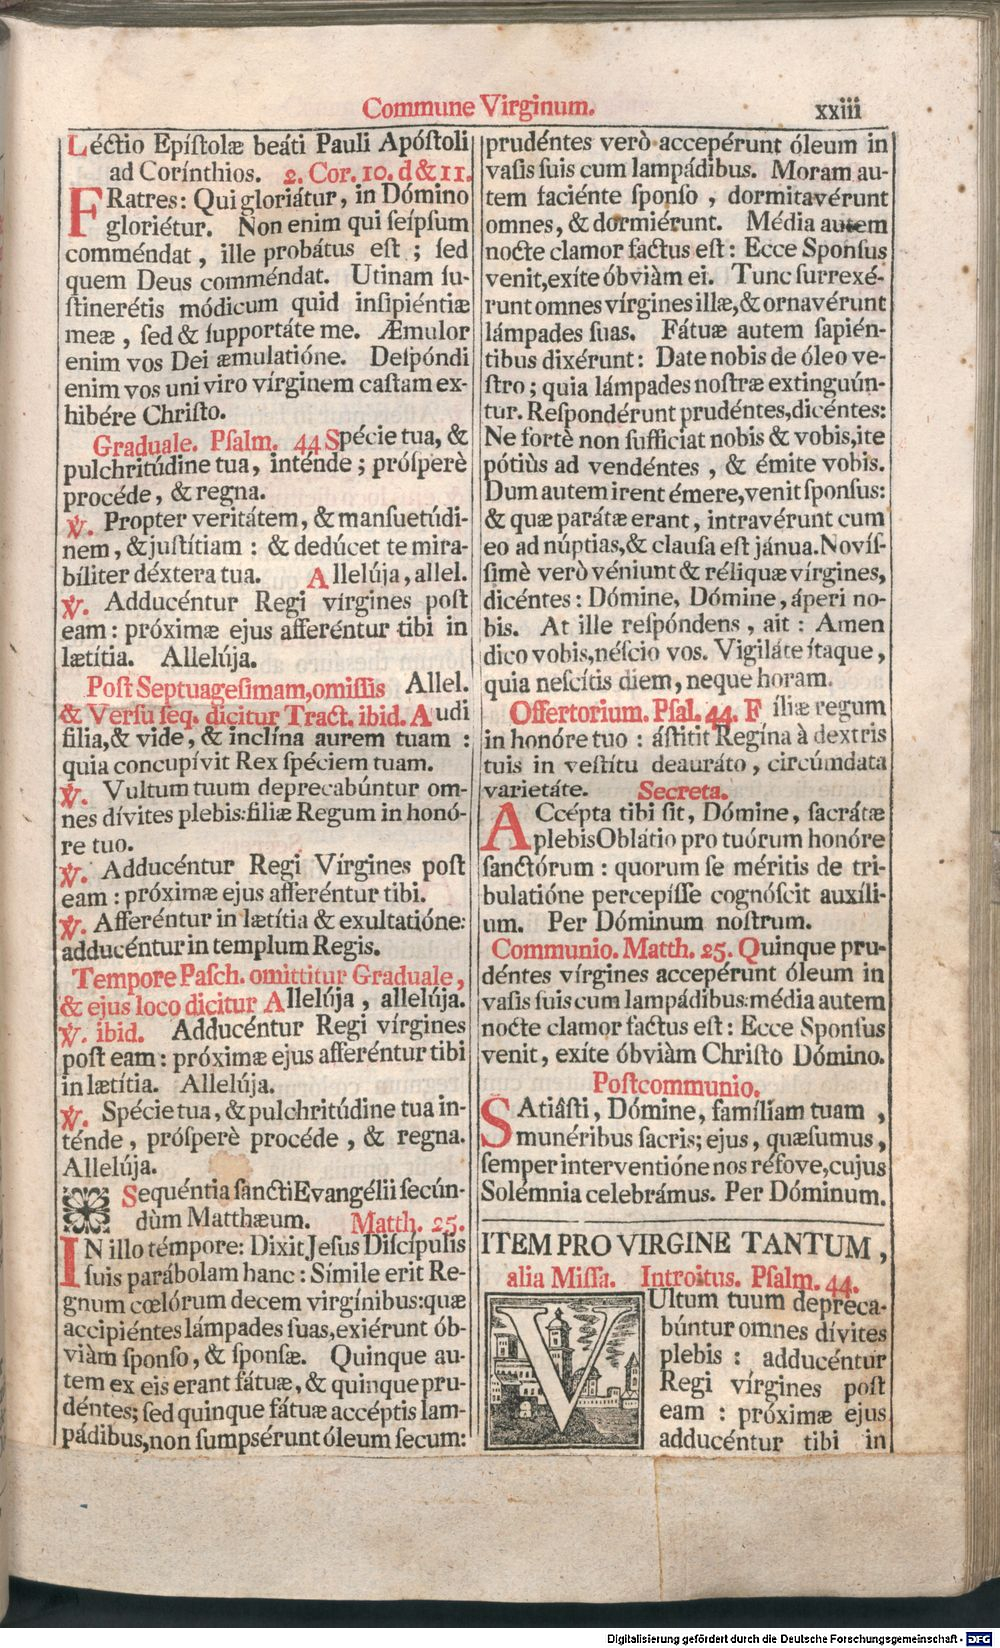 Commune Virginum.
xxiii
Léctio Epíſtolæ beáti Pauli Apóſtoli
ad Corínthios. 2. Cor. 10. d & 11.
FRatres: Qui gloriátur, in Dómino
gloriétur. Non enim qui ſeípſum
comméndat, ille probátus eſt; ſed
quem Deus comméndat. Utinam ſu-
ſtinerétis módicum quid inſipiéntiæ
meæ, ſed & ſupportáte me. Æmulor
enim vos Dei æmulatióne. Deſpóndi
enim vos uni viro vírginem caſtam ex-
hibére Chriſto.
Graduale. Pſalm. 44 Spécie tua, &
pulchritúdine tua, inténde; próſperè
procéde, & regna.
℣. Propter veritátem, & manſuetúdi-
nem, & juſtítiam: & dedúcet te mira-
bíliter déxtera tua. Allelúja, allel.
℣. Adducéntur Regi vírgines poſt
eam: próximæ ejus afferéntur tibi in
lætítia. Allelúja.
Poſt Septuageſimam, omiſſis Allel.
& Verſu ſeq. dicitur Tract. ibid. Audi
filia, & vide, & inclína aurem tuam:
quia concupívit Rex ſpéciem tuam.
℣. Vultum tuum deprecabúntur om-
nes dívites plebis: filiæ Regum in honó-
re tuo.
℣. Adducéntur Regi Vírgines poſt
eam: próximæ ejus afferéntur tibi.
℣. Afferéntur in lætítia & exultatióne:
adducéntur in templum Regis.
Tempore Paſch. omittitur Graduale,
& ejus loco dicitur Allelúja, allelúja.
℣. ibid. Adducéntur Regi vírgines
poſt eam: próximæ ejus afferéntur tibi
in lætítia. Allelúja.
℣. Spécie tua, & pulchritúdine tua in-
ténde, próſperè procéde, & regna.
Allelúja.
Sequéntia ſancti Evangélii ſecún-
dùm Matthæum. Matth. 25.
IN illo témpore: Dixit Jeſus Diſcípulis
ſuis parábolam hanc: Símile erit Re-
gnum cœlórum decem virgínibus: quæ
accipiéntes lámpades ſuas, exiérunt ób-
viàm ſponſo, & ſponſæ. Quinque au-
tem ex eis erant fátuæ, & quinque pru-
déntes; ſed quinque fátuæ accéptis lam-
pádibus, non ſumpsérunt óleum ſecum:
prudéntes verò accepérunt óleum in
vaſis ſuis cum lampádibus. Moram au-
tem faciénte ſponſo, dormitavérunt
omnes, & dormiérunt. Média autem
nocte clamor factus eſt: Ecce Sponſus
venit, exíte óbviàm ei. Tunc ſurrexé-
runt omnes vírgines illæ, & ornavérunt
lámpades ſuas. Fátuæ autem ſapién-
tibus dixérunt: Date nobis de óleo ve-
ſtro; quia lámpades noſtræ extinguún-
tur. Reſpondérunt prudéntes, dicéntes:
Ne fortè non ſufficiat nobis & vobis, ite
pótiùs ad vendéntes, & émite vobis.
Dum autem irent émere, venit ſponſus:
& quæ parátæ erant, intravérunt cum
eo ad núptias, & clauſa eſt jánua. Novíſ-
ſimè verò véniunt & réliquæ vírgines,
dicéntes: Dómine, Dómine, áperi no-
bis. At ille reſpóndens, ait: Amen
dico vobis, néſcio vos. Vigiláte ítaque,
quia neſcítis diem, neque horam.
Offertorium. Pſal. 44. Fíliæ regum
in honóre tuo: áſtitit Regína à dextris
tuis in veſtítu deauráto, circúmdata
varietáte. Secreta.
ACcépta tibi ſit, Dómine, ſacrátæ
plebis Oblátio pro tuórum honóre
ſanctórum: quorum ſe méritis de tri-
bulatióne percepíſſe cognóſcit auxíli-
um. Per Dóminum noſtrum.
Communio. Matth. 25. Quinque pru-
déntes vírgines accepérunt óleum in
vaſis ſuis cum lampádibus: média autem
nocte clamor factus eſt: Ecce Sponſus
venit, exíte óbviàm Chriſto Dómino.
Poſtcommunio.
SAtiâſti, Dómine, famíliam tuam,
munéribus ſacris; ejus, quæſumus,
ſemper interventióne nos réfove, cujus
Solémnia celebrámus. Per Dóminum.
ITEM PRO VIRGINE TANTUM,
alia Miſſa. Introitus. Pſalm. 44.
VUltum tuum depreca-
búntur omnes dívites
plebis: adducéntur
Regi vírgines poſt
eam: próximæ ejus
adducéntur tibi in
Digitalisierung gefördert durch die Deutsche Forschungsgemeinschaft - DFG